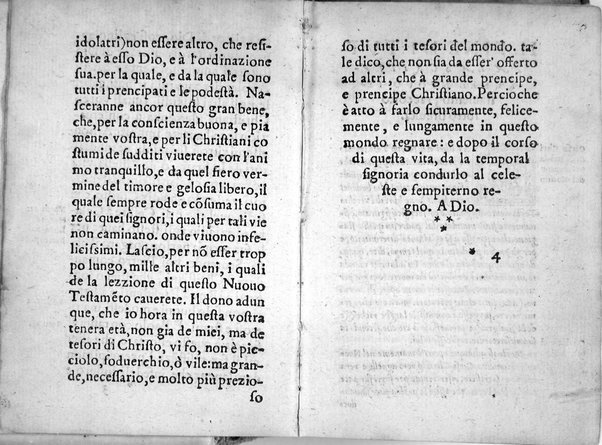 idolatri) non eſſere altro, che reſi-
ſtere à eſſo Dio, e à l'ordinazione
ſua. per la quale, e da la quale ſono
tutti i prencipati e le podeſtà. Na-
ſceranno ancor queſto gran bene,
che, per la conſcienza buona, e pia
mente voſtra, e per li Chriſtiani co
ſtumi de ſudditi viuerete con l'ani
mo tranquillo, e da quel fiero ver-
mine del timore e geloſia libero, il
quale ſempre rode e cõſuma il cuo
re di quei ſignori, i quali per tali vie
non caminano. onde viuono infe-
liciſſimi. Laſcio, per nõ eſſer trop
po lungo, mille altri beni, i quali
de la lezzione di queſto Nuouo
Teſtamẽto cauerete. Il dono adun
que, che io hora in queſta voſtra
tenera età, non gia de miei, ma de
teſori di Chriſto, vi fo, non è pic-
ciolo, ſoduerchio, ò vile: ma gran-
de, neceſſario, e molto più prezio-
ſo
ſo di tutti i teſori del mondo. ta-
le dico, che non ſia da eſſer' offerto
ad altri, che à grande prencipe,
e prencipe Chriſtiano. Percioche
è atto à farlo ſicuramente, felice-
mente, e lungamente in queſto
mondo regnare: e dopo il corſo
di queſta vita, da la temporal
ſignoria condurlo al cele-
ſte e ſempiterno re-
gno. A Dio.
* *
*
* 4